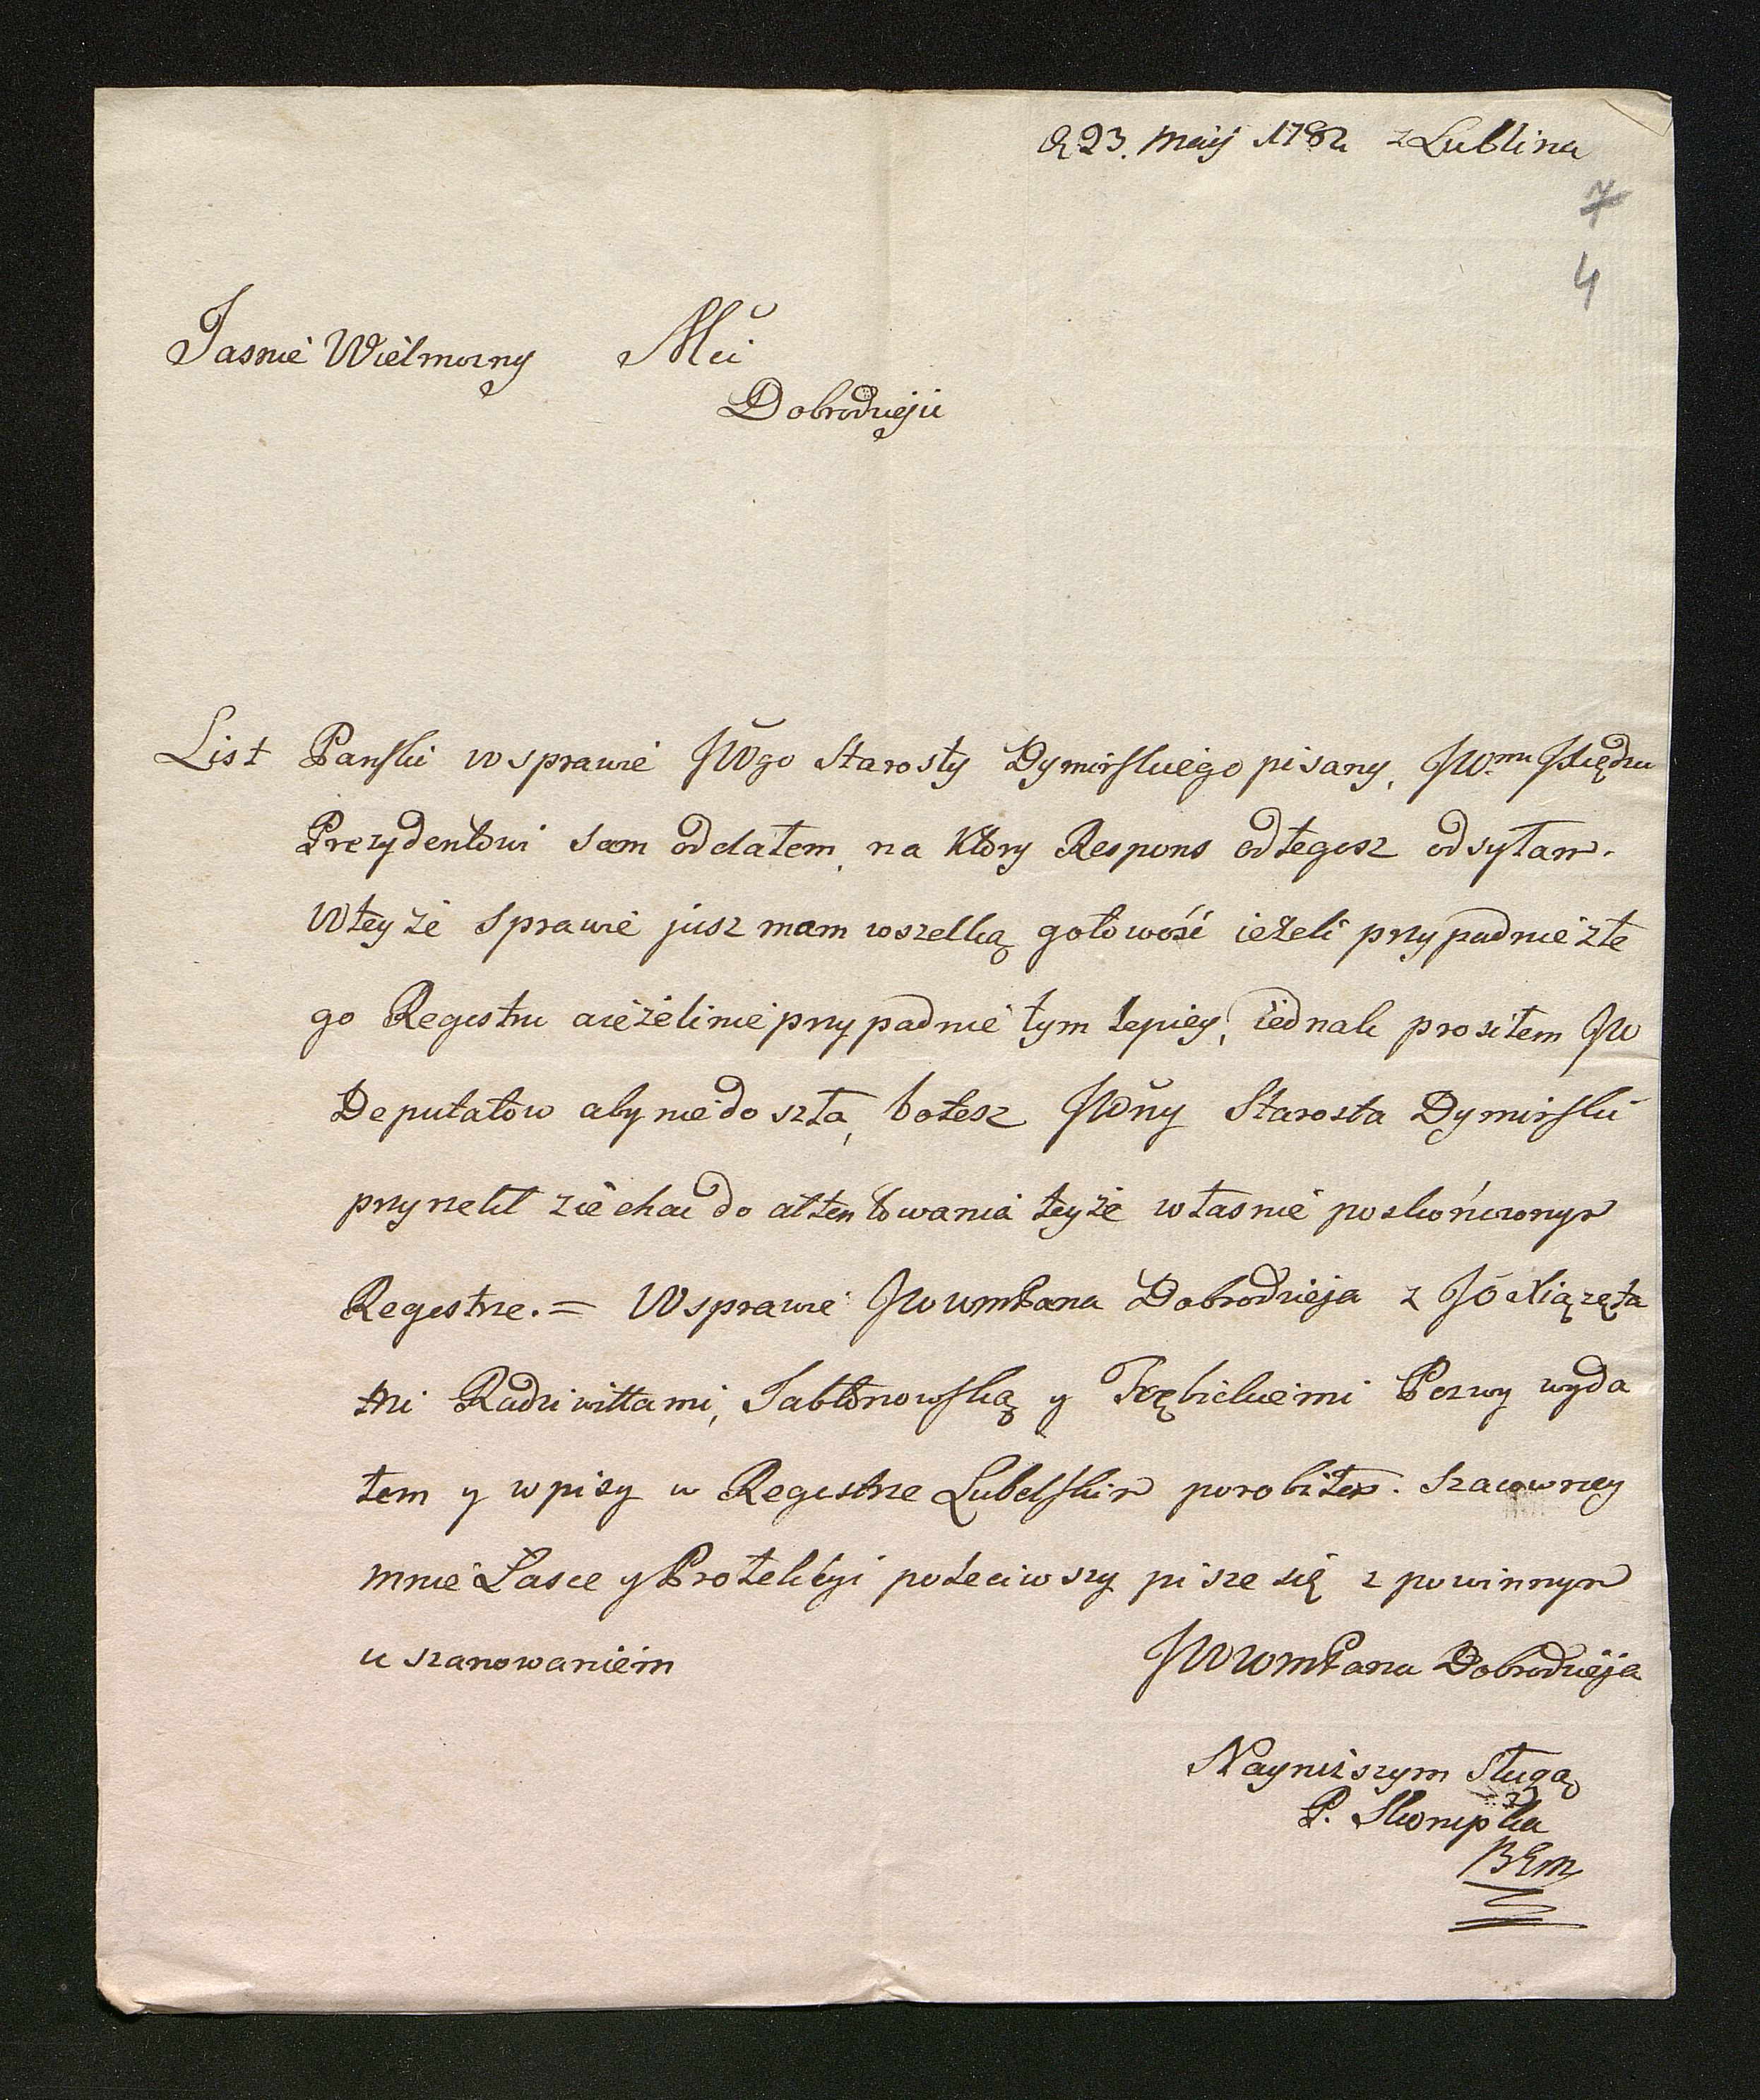 D 23. Maij 1782 z Lublina
7
4
Jasnie Wielmozny Mci
Dobrodzieju
List Panski w sprawie JWgo Starosty Dymirskiego pisany, JW.mu Xiędzu
Prezydentowi sam oddałem, na ktory Respons od tegosz odsyłam.
W tey że sprawie jusz mam wszelką gotowość ieżeli przypadnie z te
go Regestru a ieżeli nie przypadnie tym lepiey, iednak prosiłem JW
Deputatow aby nie doszła, bo tesz JWny Starosta Dymirski
przyrzekł ziechac do attentowania teyże własnie po skończonym
Regestrze. = W sprawie JWWmPana Dobrodzieja z JO Xiążęta
mi Radziwiłłami, Jabłonowską y Trębickiemi Pozwy wyda
łem y wpisy w Regestrze Lubelskim porobiłem. Szacowney
mnie Łasce y Protekcyi poleciwszy pisze się z powinnym
uszanowaniem JWWmPana Dobrodzieja
Nayniższym Sługą
P. Skompska
BEM